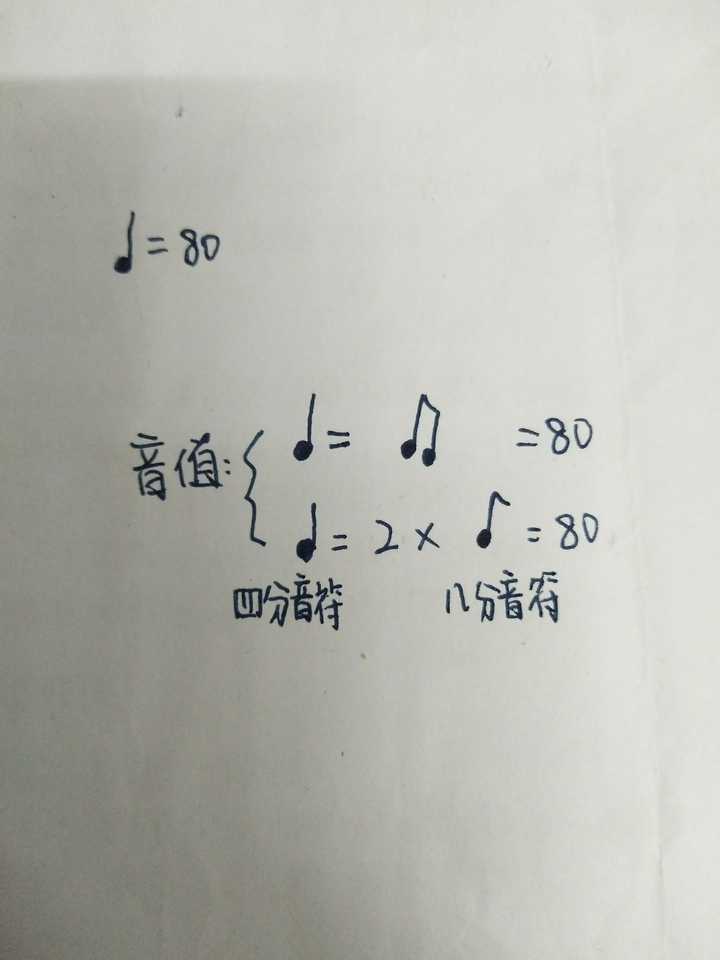 ♩=80
音值:{ ♩= ♫ =80
♩= 2× ♪ =80
四分音符 八分音符